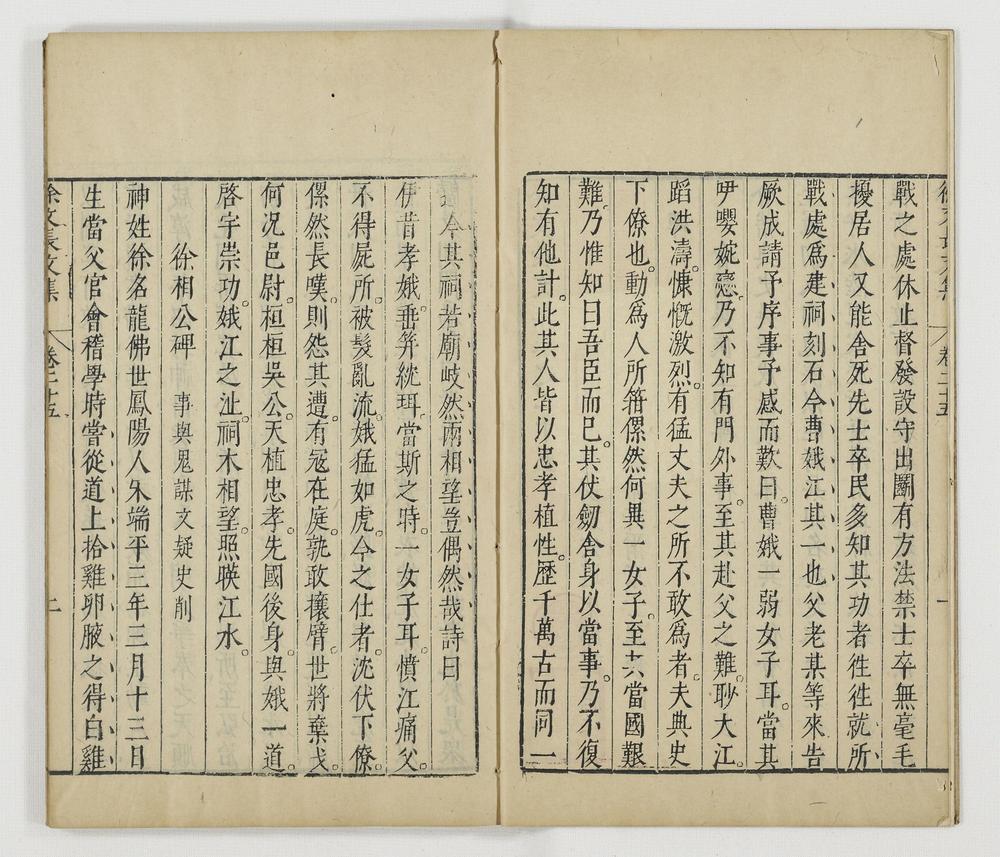 戰之處休止督發設守出鬬有方法禁士卒無毫毛
擾居人又能舍死先士卒民多知其功者徃徃就所
戰處爲建祠刻石今曹娥江其一也父老某等來告
厥成請予序事予感而歎曰曹娥一弱女子耳當其
吚嚶婉戀乃不知有門外事至其赴父之難眇大江
蹈洪濤慷慨激烈有猛丈夫之所不敢爲者夫典史
下僚也動爲人所箝傫然何異一女子至其當國艱
難乃惟知曰吾臣而已其伏劒舍身以當事乃不復
知有他計此其人皆以忠孝植性歷千萬古而同一
今其祠若廟岐然兩相望豈偶然哉詩曰
伊昔孝娥垂笄紞珥當斯之時一女子耳憤江痛父
不得屍所被髮亂流娥猛如虎今之仕者沈伏下僚
傫然長嘆則怨其遭有冦在庭孰敢攘臂世將棄戈
何况邑尉桓桓吳公天植忠孝先國後身與娥一道
啓宇崇功娥江之沚祠木相望照暎江水
徐相公碑 事與鬼謀文疑史削
神姓徐名龍佛世鳳陽人宋端平三年三月十三日
生當父官會稽學時嘗從道上拾雞卵腋之得白雞
徐文長文集 卷二十五 二